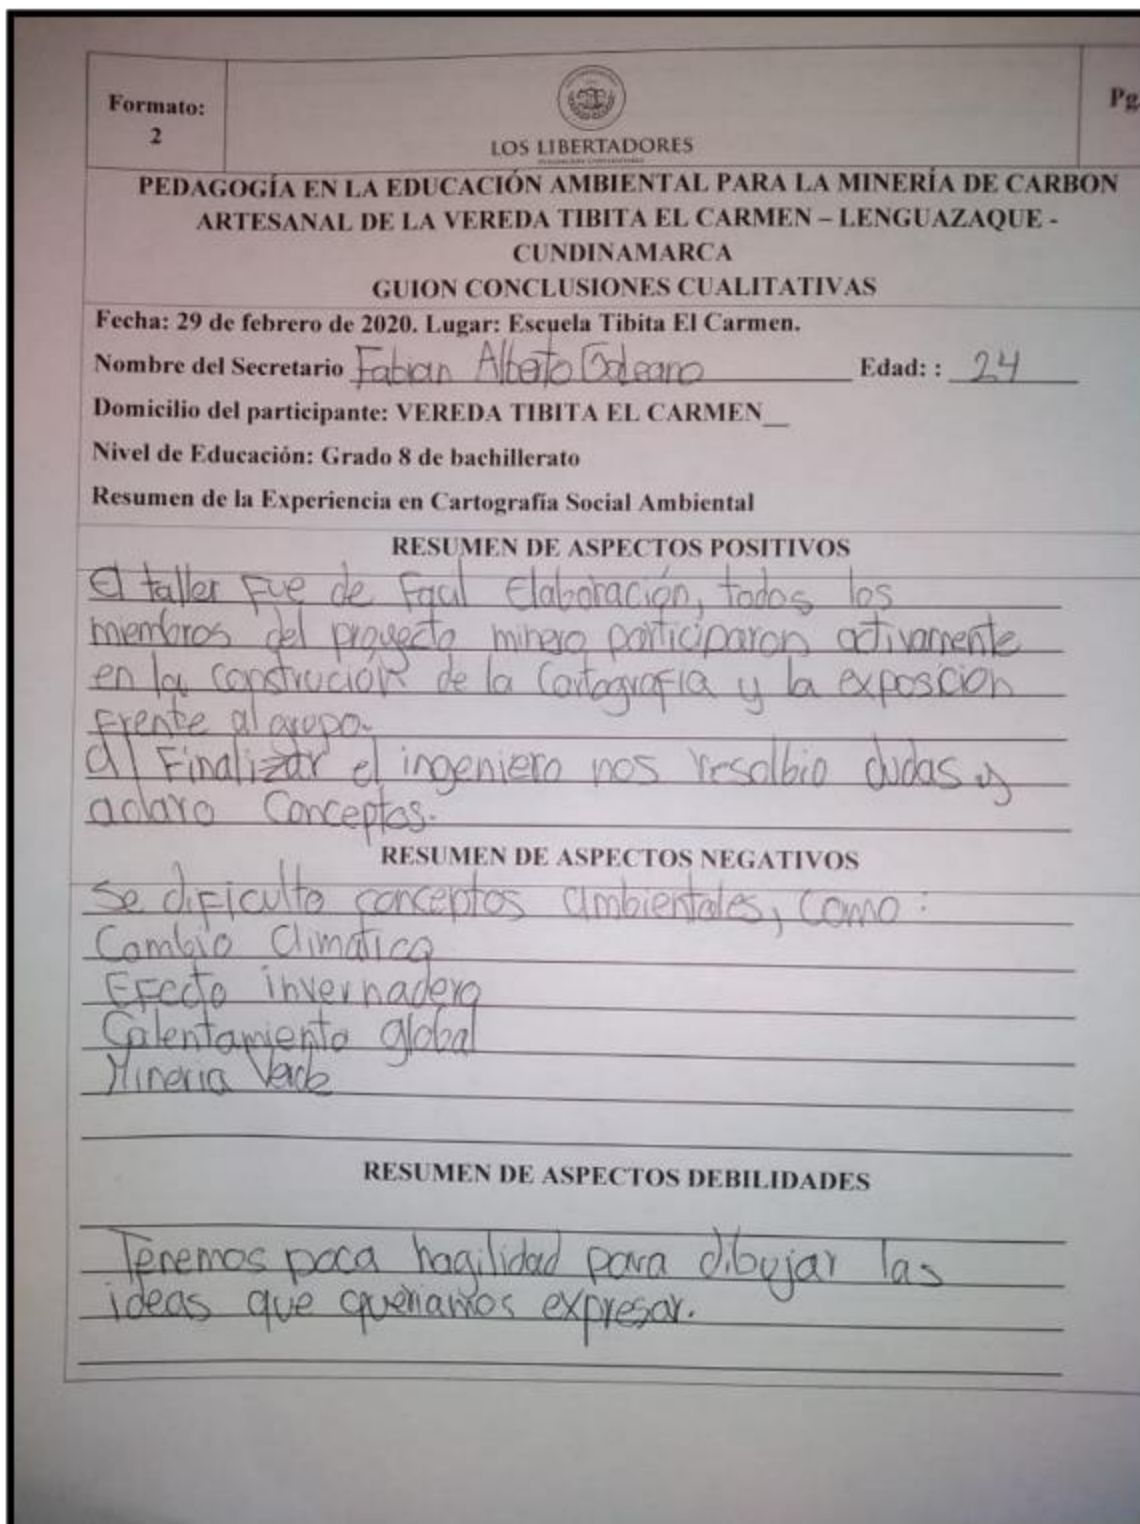 Formato:
2
Pg.
LOS LIBERTADORES
PEDAGOGÍA EN LA EDUCACIÓN AMBIENTAL PARA LA MINERÍA DE CARBON
ARTESANAL DE LA VEREDA TIBITA EL CARMEN – LENGUAZAQUE -
CUNDINAMARCA
GUION CONCLUSIONES CUALITATIVAS
Fecha: 29 de febrero de 2020. Lugar: Escuela Tibita El Carmen.
Nombre del Secretario Fabian Alberto Galeano Edad: : 24
Domicilio del participante: VEREDA TIBITA EL CARMEN__
Nivel de Educación: Grado 8 de bachillerato
Resumen de la Experiencia en Cartografía Social Ambiental
RESUMEN DE ASPECTOS POSITIVOS
El taller fue de facil Elaboración, todos los
miembros del proyecto minero participaron activamente
en la construción de la Cartografia y la exposcion
frente al grupo.
al Finalizar el ingeniero nos resolbio dudas y
aclaro Conceptos.
RESUMEN DE ASPECTOS NEGATIVOS
Se dificulto conceptos ambientales, como:
Cambio Climatico
Efecto invernadero
Calentamiento global
Mineria Verde
RESUMEN DE ASPECTOS DEBILIDADES
Tenemos poca hagilidad para dibujar las
ideas que queriamos expresar.